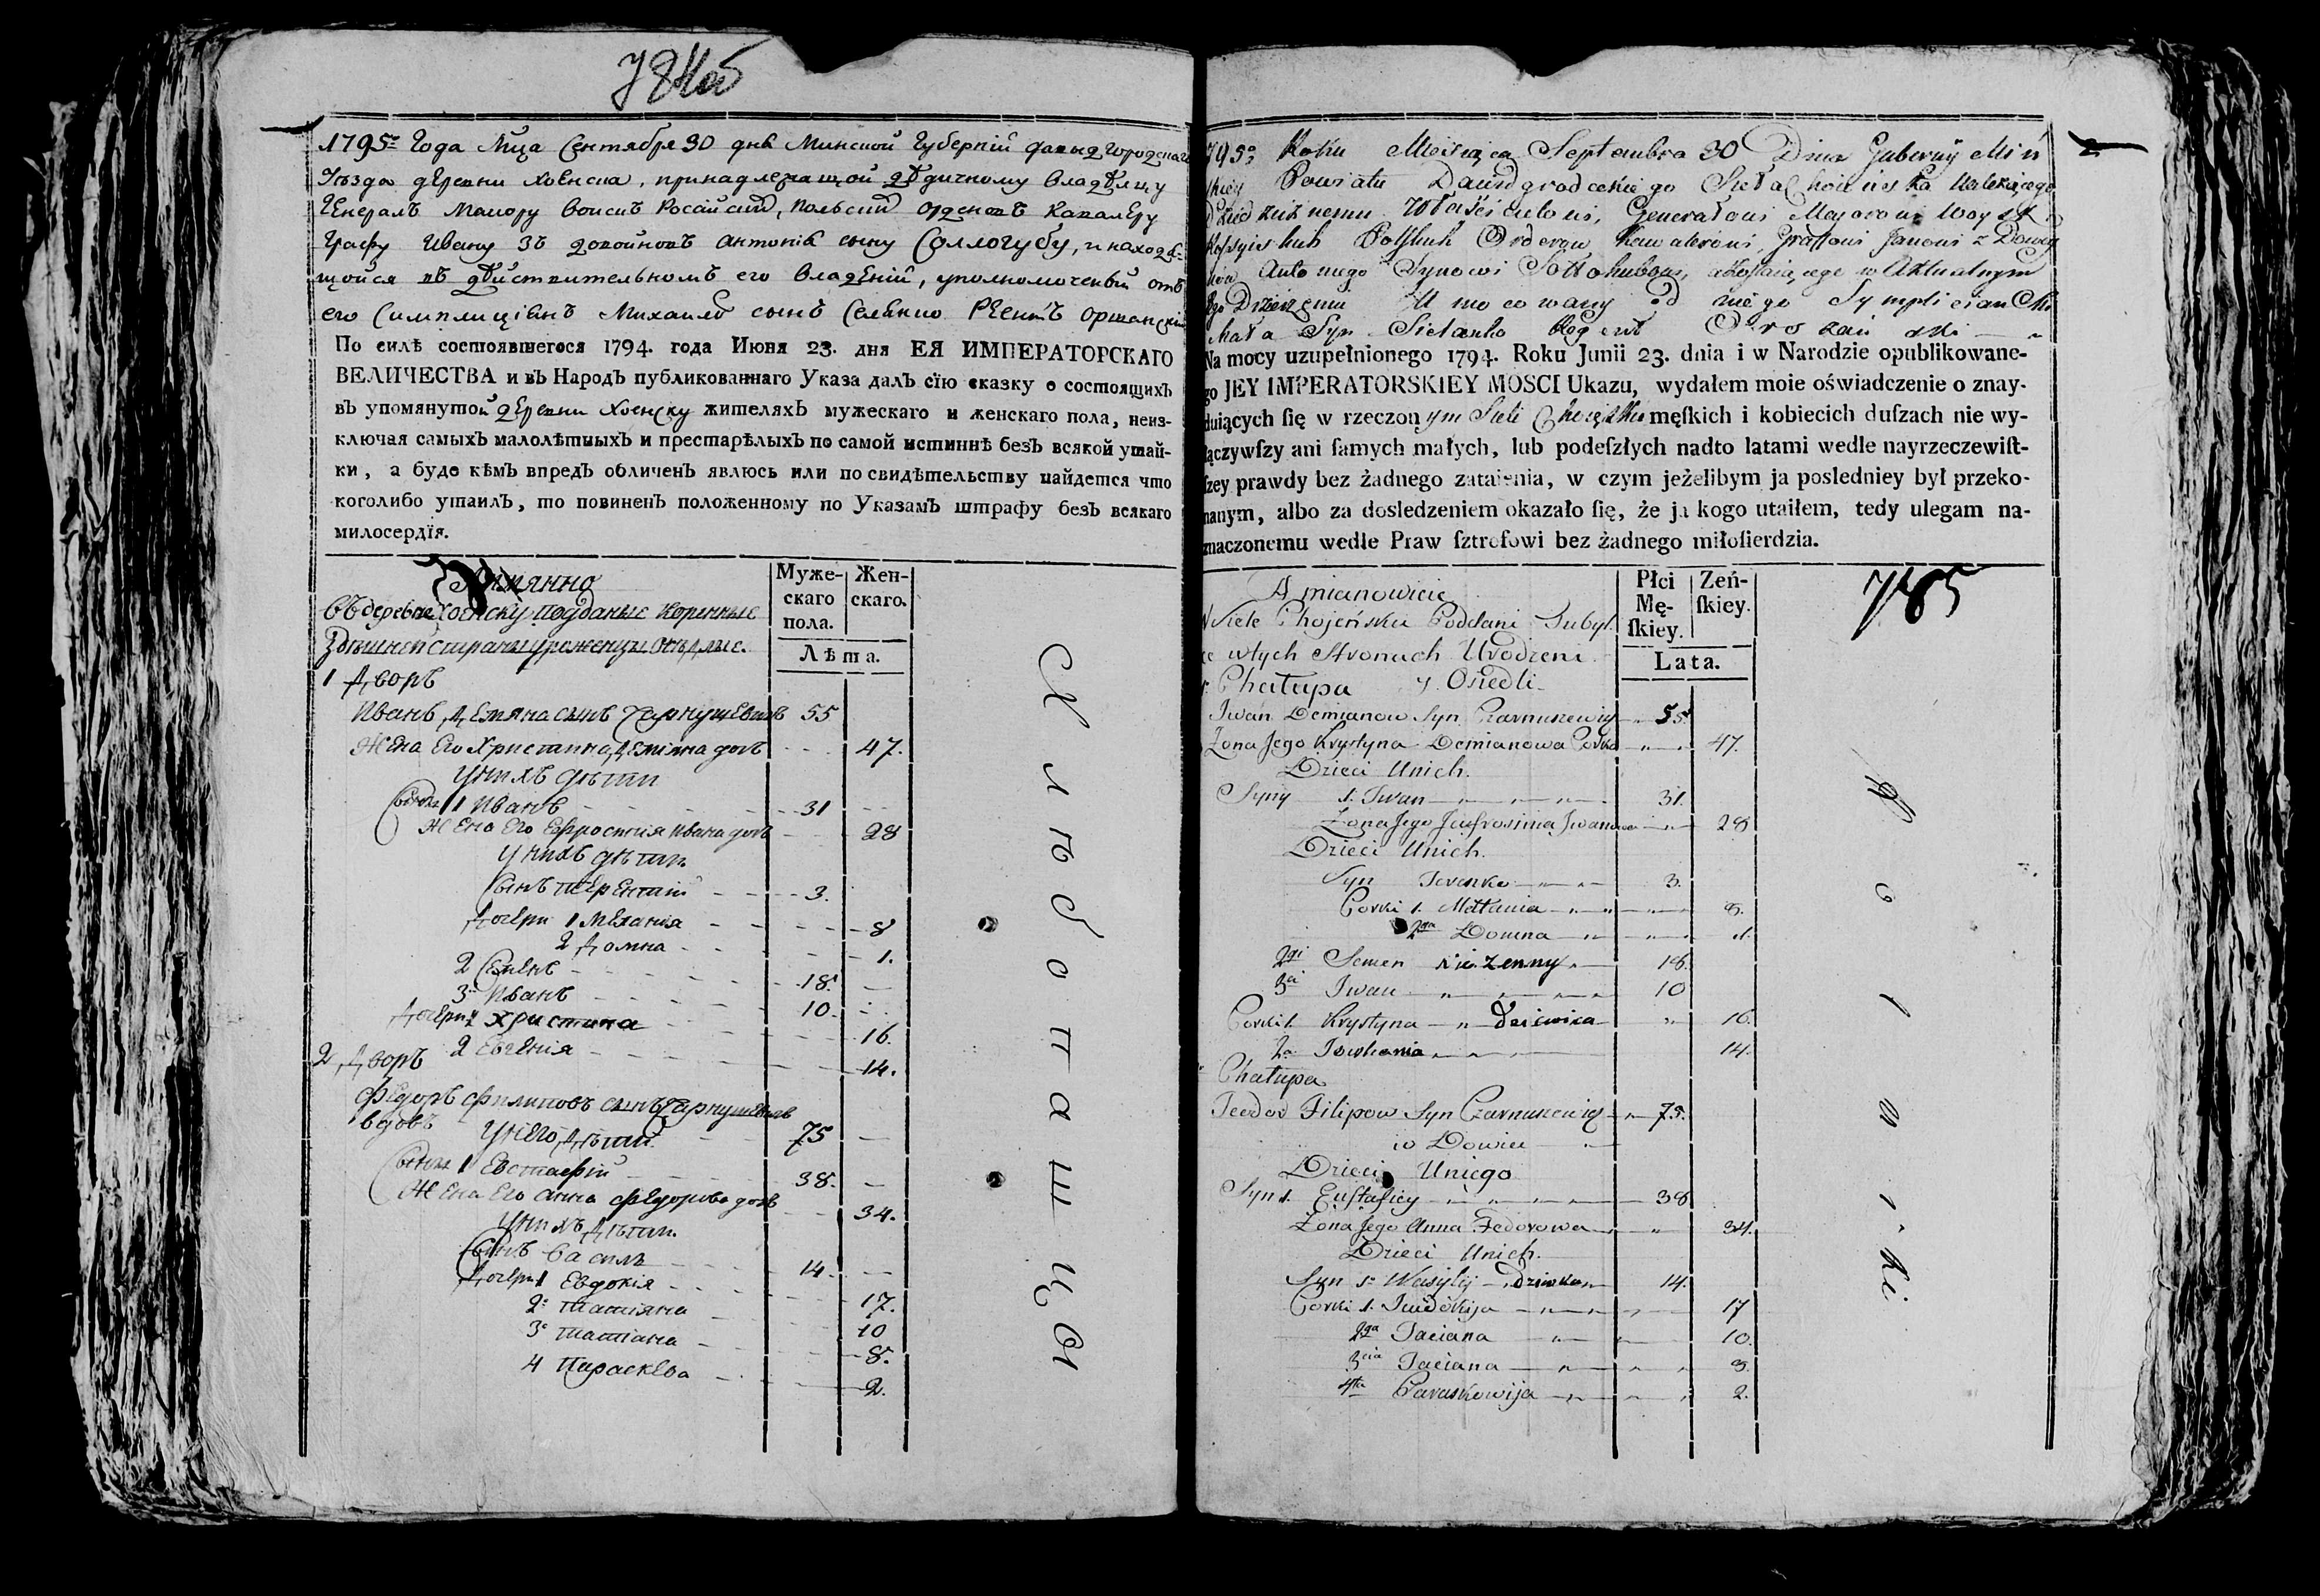 784об
1795го Года Мца Сентября 30 дня Минской Губерніи Давыдгородскаго
Уѣзда деревни Хоенска, принадлежащой дѣдичному владѣльцу
Генералъ Маіору войскъ Росаійскихъ, польскихъ орденовъ Кавалеру
Графу Ивану зъ довойновъ антонія сыну Соллогубу, и находя-
щойся въ дѣйствительномъ его владеніи, уполномоченый отъ
его Симплиціянъ Михайло сынъ Селянко Реентъ оршанскій
По силѣ состоявшегося 1794. года Июня 23. дня ЕЯ ИМПЕРАТОРСКАГО
ВЕЛИЧЕСТВА и въ Народъ публикованнаго Указа далъ сїю сказку о состоящихъ
въ упомянутой деревни Хоенску жителяхъ мужескаго и женскаго пола, неиз-
ключая самыхъ малолѣтныхъ и престарѣлыхъ по самой истиннѣ безъ всякой утай-
ки, а буде кѣмъ впредъ обличенъ явлюсь или по свидѣтельству найдется что
коголибо утаилъ, то повиненъ положенному по Указамъ штрафу безъ всякаго
милосердїя.
Аимянно
Въ деревне Хоенску подданые коренные
здѣшней страны уроженцы оседлые.
Муже-
скаго
пола.
Жен-
скаго.
Лѣта.
1 Дворъ
Иванъ Демяна сынъ Чарнушевичъ 55
Жена Его Христина Демяна дочь 47.
У них дѣти
Сыны 1 Иванъ 31
Жена Его Ефросинія Ивана дочь 28
У нихъ дѣти
Сынъ терентій 3.
Дочери 1 Меланія 8
2 Домна 1.
2 Семенъ 18.
3 Иванъ 10.
Дочери 1 Христина 16.
2 Евгенія 14.
2 Дворъ
Федоръ Филиповъ сынъ Чарнушевичъ
вдовъ 75
У него Дѣти
Сыны 1 Евстафій 38.
Жена Его Анна Федорова дочь 34.
У нихъ Дѣти
Сынъ Василь 14.
Дочери 1 Евдокія 17.
2 татіяна 10
3 татіана 8.
4 Параскева 2.
Хлѣбопашцы
2
1795o Roku Miesiąca Septembra 30 Dnia Gubernij Miń
skiey Powiatu Dawidgrodeckiego Sieła Choieńska Należącego
Dziedzicznemu Właścicielowi, Generałowi Majorowi Woysk
Rossyiskich Polskich Orderow Kawalerowi, Graffowi Janowi z Dowoy
nów Antoniego Synowi Sołłohubowi, a zostaiącego w Aktualnym
Jego Dzierżeniu Umocowany od niego Symplician Mi
chała Syn Sielanko Regent Orszański
Na mocy uzupełnionego 1794. Roku Junii 23. dnia i w Narodzie opublikowane-
go JEY IMPERATORSKIEY MOSCI Ukazu, wydałem moie oświadczenie o znay-
duiących ſię w rzeczonym Siele Choieńsku męſkich i kobiecich duſzach nie wy-
łączywſzy ani ſamych małych, lub podeſzłych nadto latami wedle nayrzeczewiſt-
ſzey prawdy bez żadnego zataienia, w czym jeżelibym ja posledniey był przeko-
nanym, albo za dosledzeniem okazało ſię, że ja kogo utaiłem, tedy ulegam na-
znaczonemu wedle Praw ſztrofowi bez żadnego miłoſierdzia.
A mianowicie
W Siele Chojeńsku Poddani Tubyl
ce w tych Stronach Urodzeni
y. Osiedli
Płci
Mę-
ſkiey.
Zeń-
ſkiey.
Lata.
785
1. Chałupa
Iwan Demianow Syn Czarnuszewicz 55
Zona Jego Krystyna Demianowa Corka 47.
Dzieci Unich.
Syny 1. Iwan 31.
Zona Jego Jeufrosinia Iwanowa 28
Dzieci Unich.
Syn Terenko 3.
Corki 1. Mełania 8.
2ga Domna 1.
2gi Semen nie żenny 18.
3ci Iwan 10
Corki 1. Krystyna Dziewica 16.
2a Iowhenia 14.
Chałupa
Teodor Filipow Syn Czarnuszewicz 75.
w Dowiec
Dzieci Uniego
Syn 1. Eustafiey 38
Zona Jego Anna Fedorowa 34.
Dzieci Unich.
Syn 1. Wasylij 14.
Corki 1. Iwdokija 17
2ga Taciana 10.
3cia Taciana 8.
4ta Paraskowija 2.
Rolniki